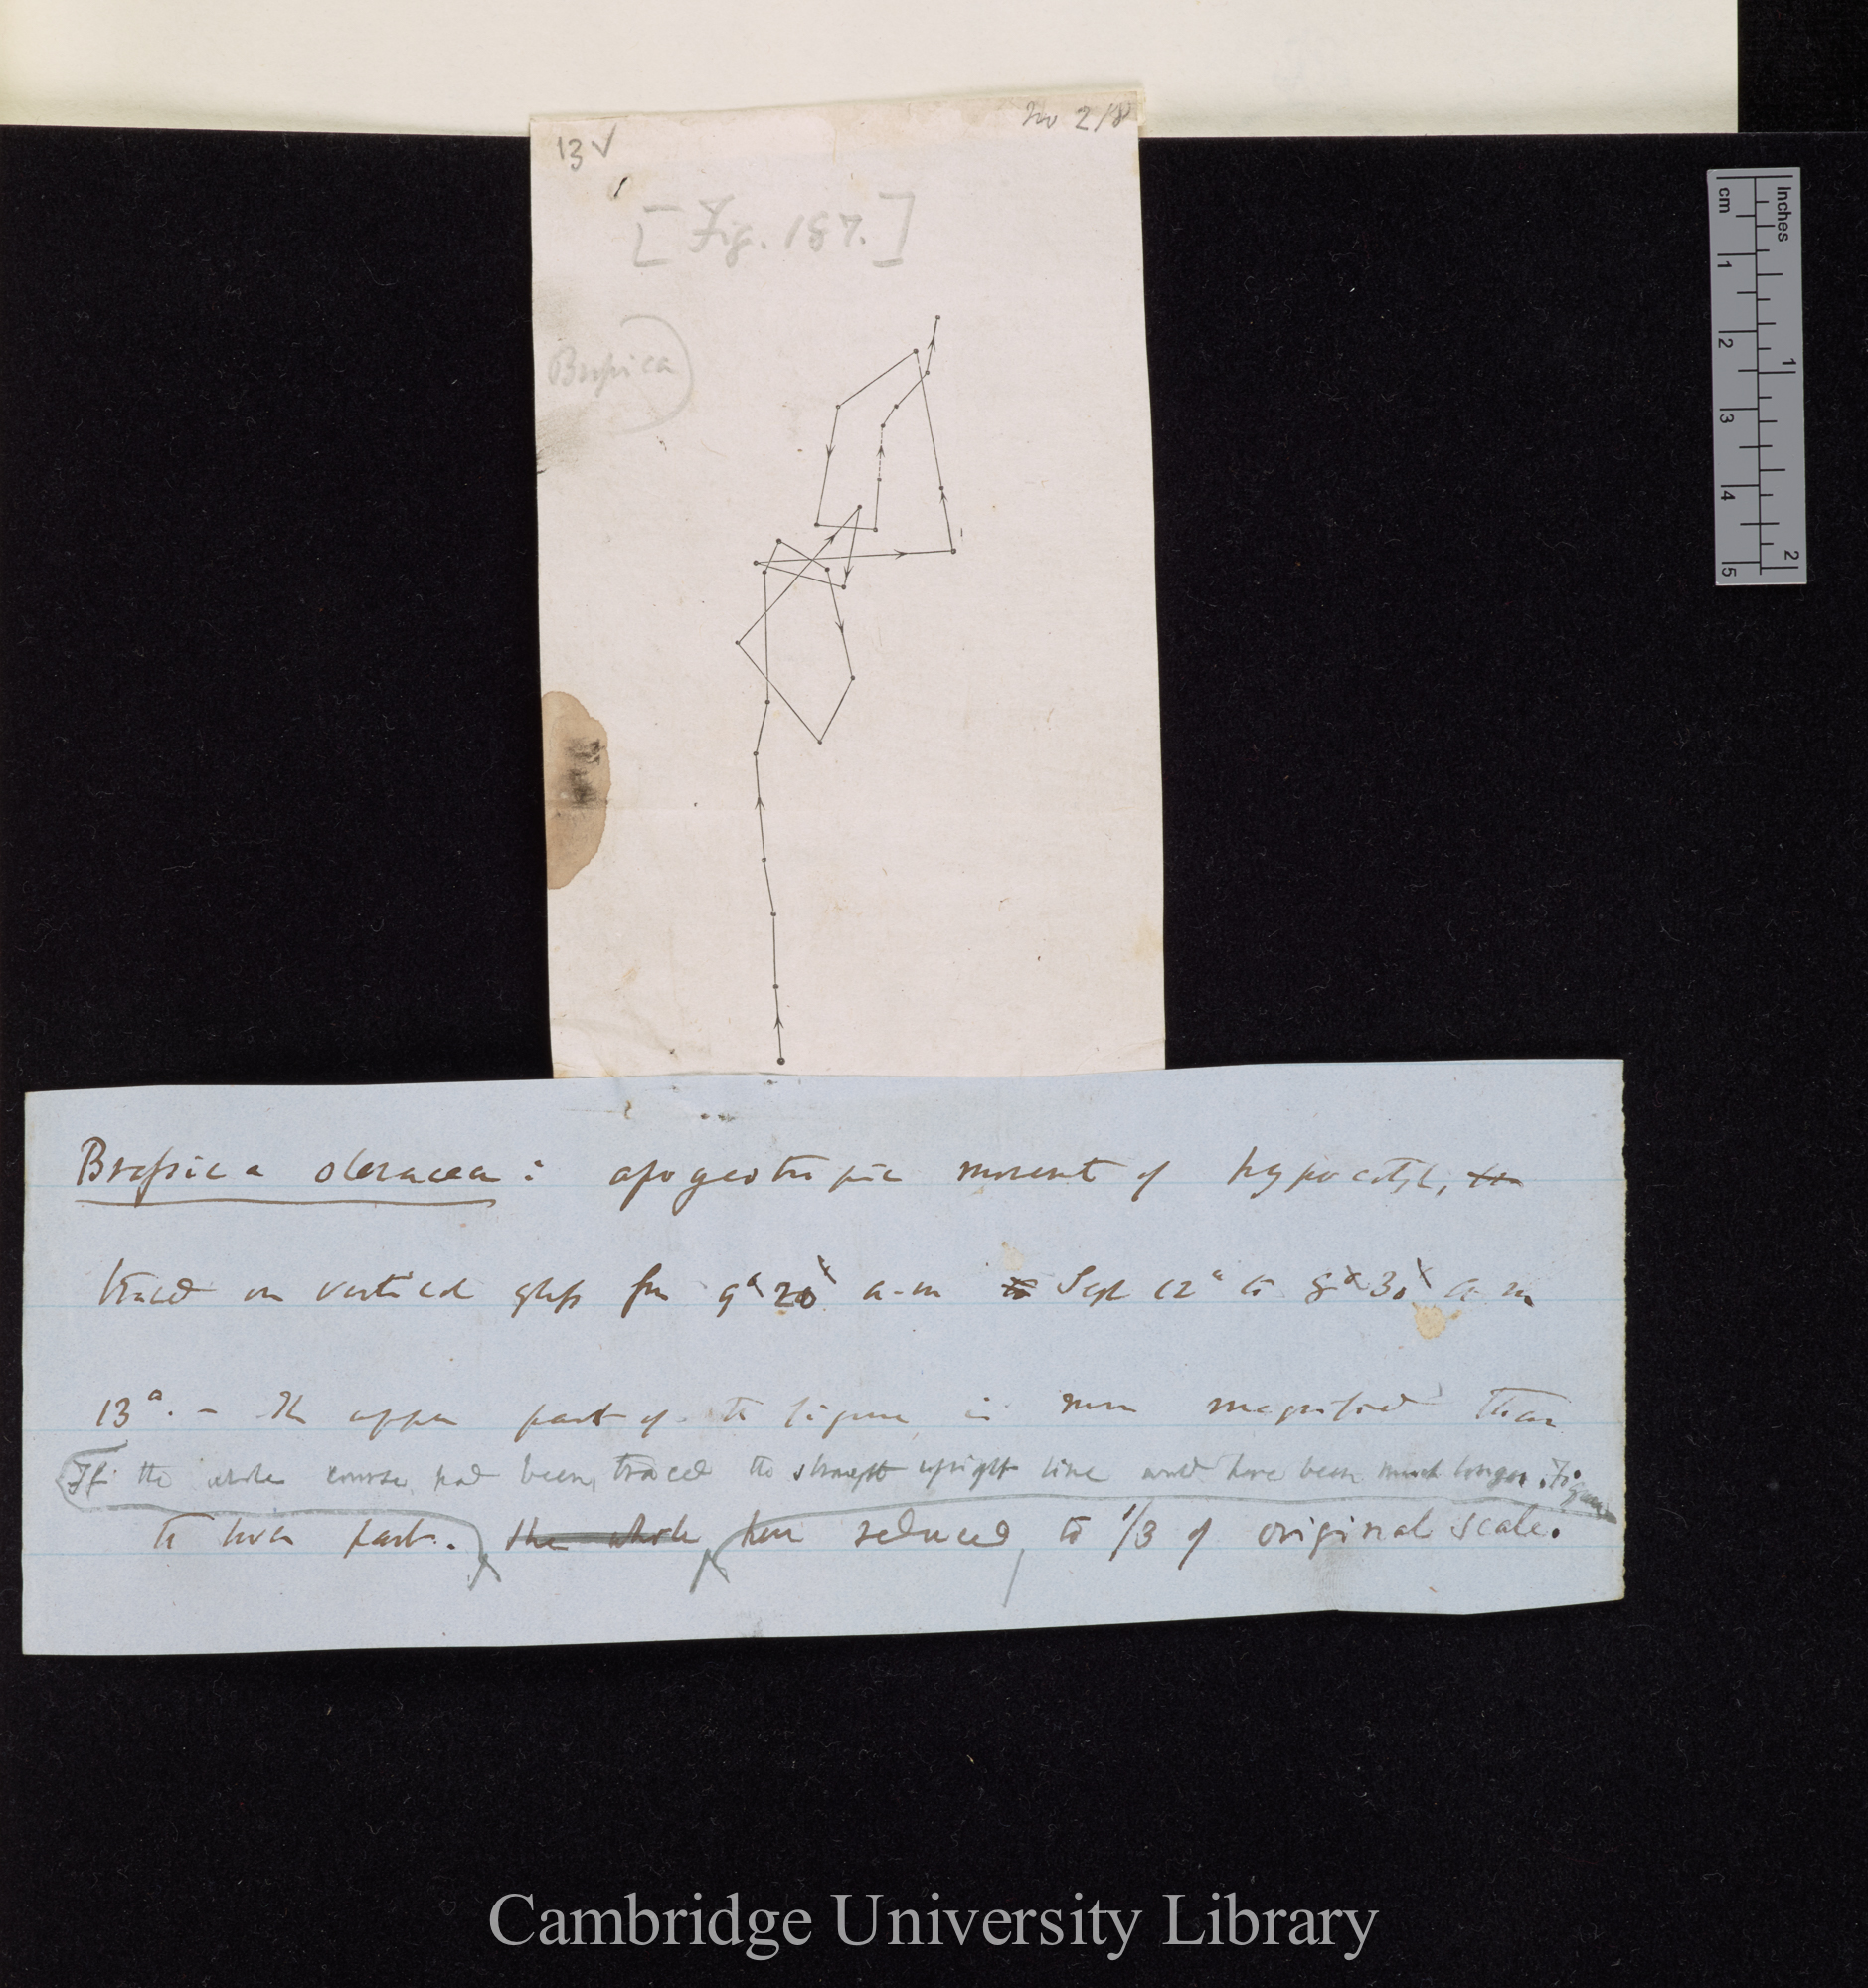 No 2/8
13 ✓
[Fig. 187.]
Brassica)
Brassica oleracea: apogeotropic movement of hypocotyl, to
traced on vertical glass from 9ᵃ 20 a.m to Sept 12ᵃ to 8ᵃ 30 a m
13ᵃ. – The upper part of the figure is more magnified than
If the whole course had been traced the straight upright line would have been much longer. Figure
the lower part. the whole here reduced to 1/3 of original scale.
cm 1 2 3 4 5
Inches 1 2
Cambridge University Library